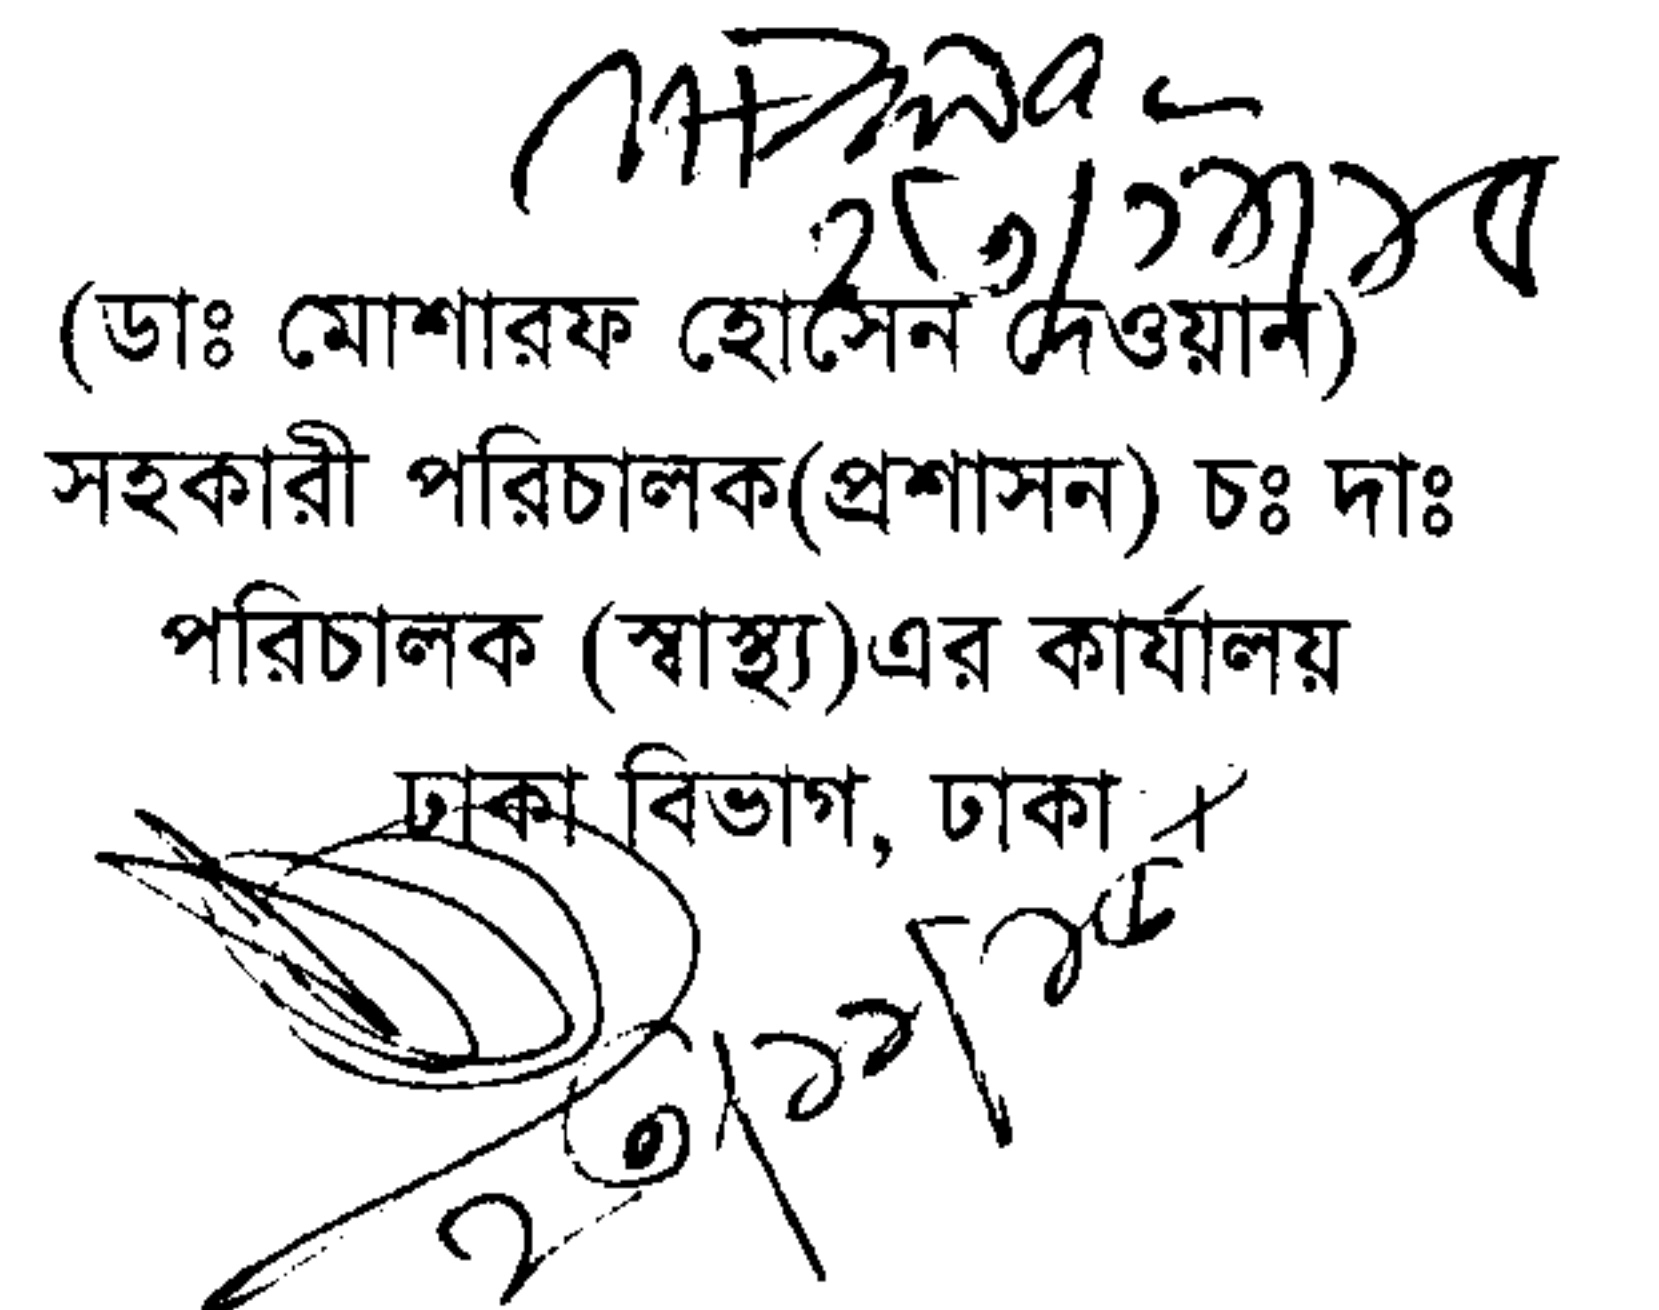 (ডাঃ মোশারফ হোসেন দেওয়ান)
সহকারী পরিচালক(প্রশাসন) চঃ দাঃ
পরিচালক (স্বাস্থ্য)এর কার্যালয়
ঢাকা বিভাগ, ঢাকা ।